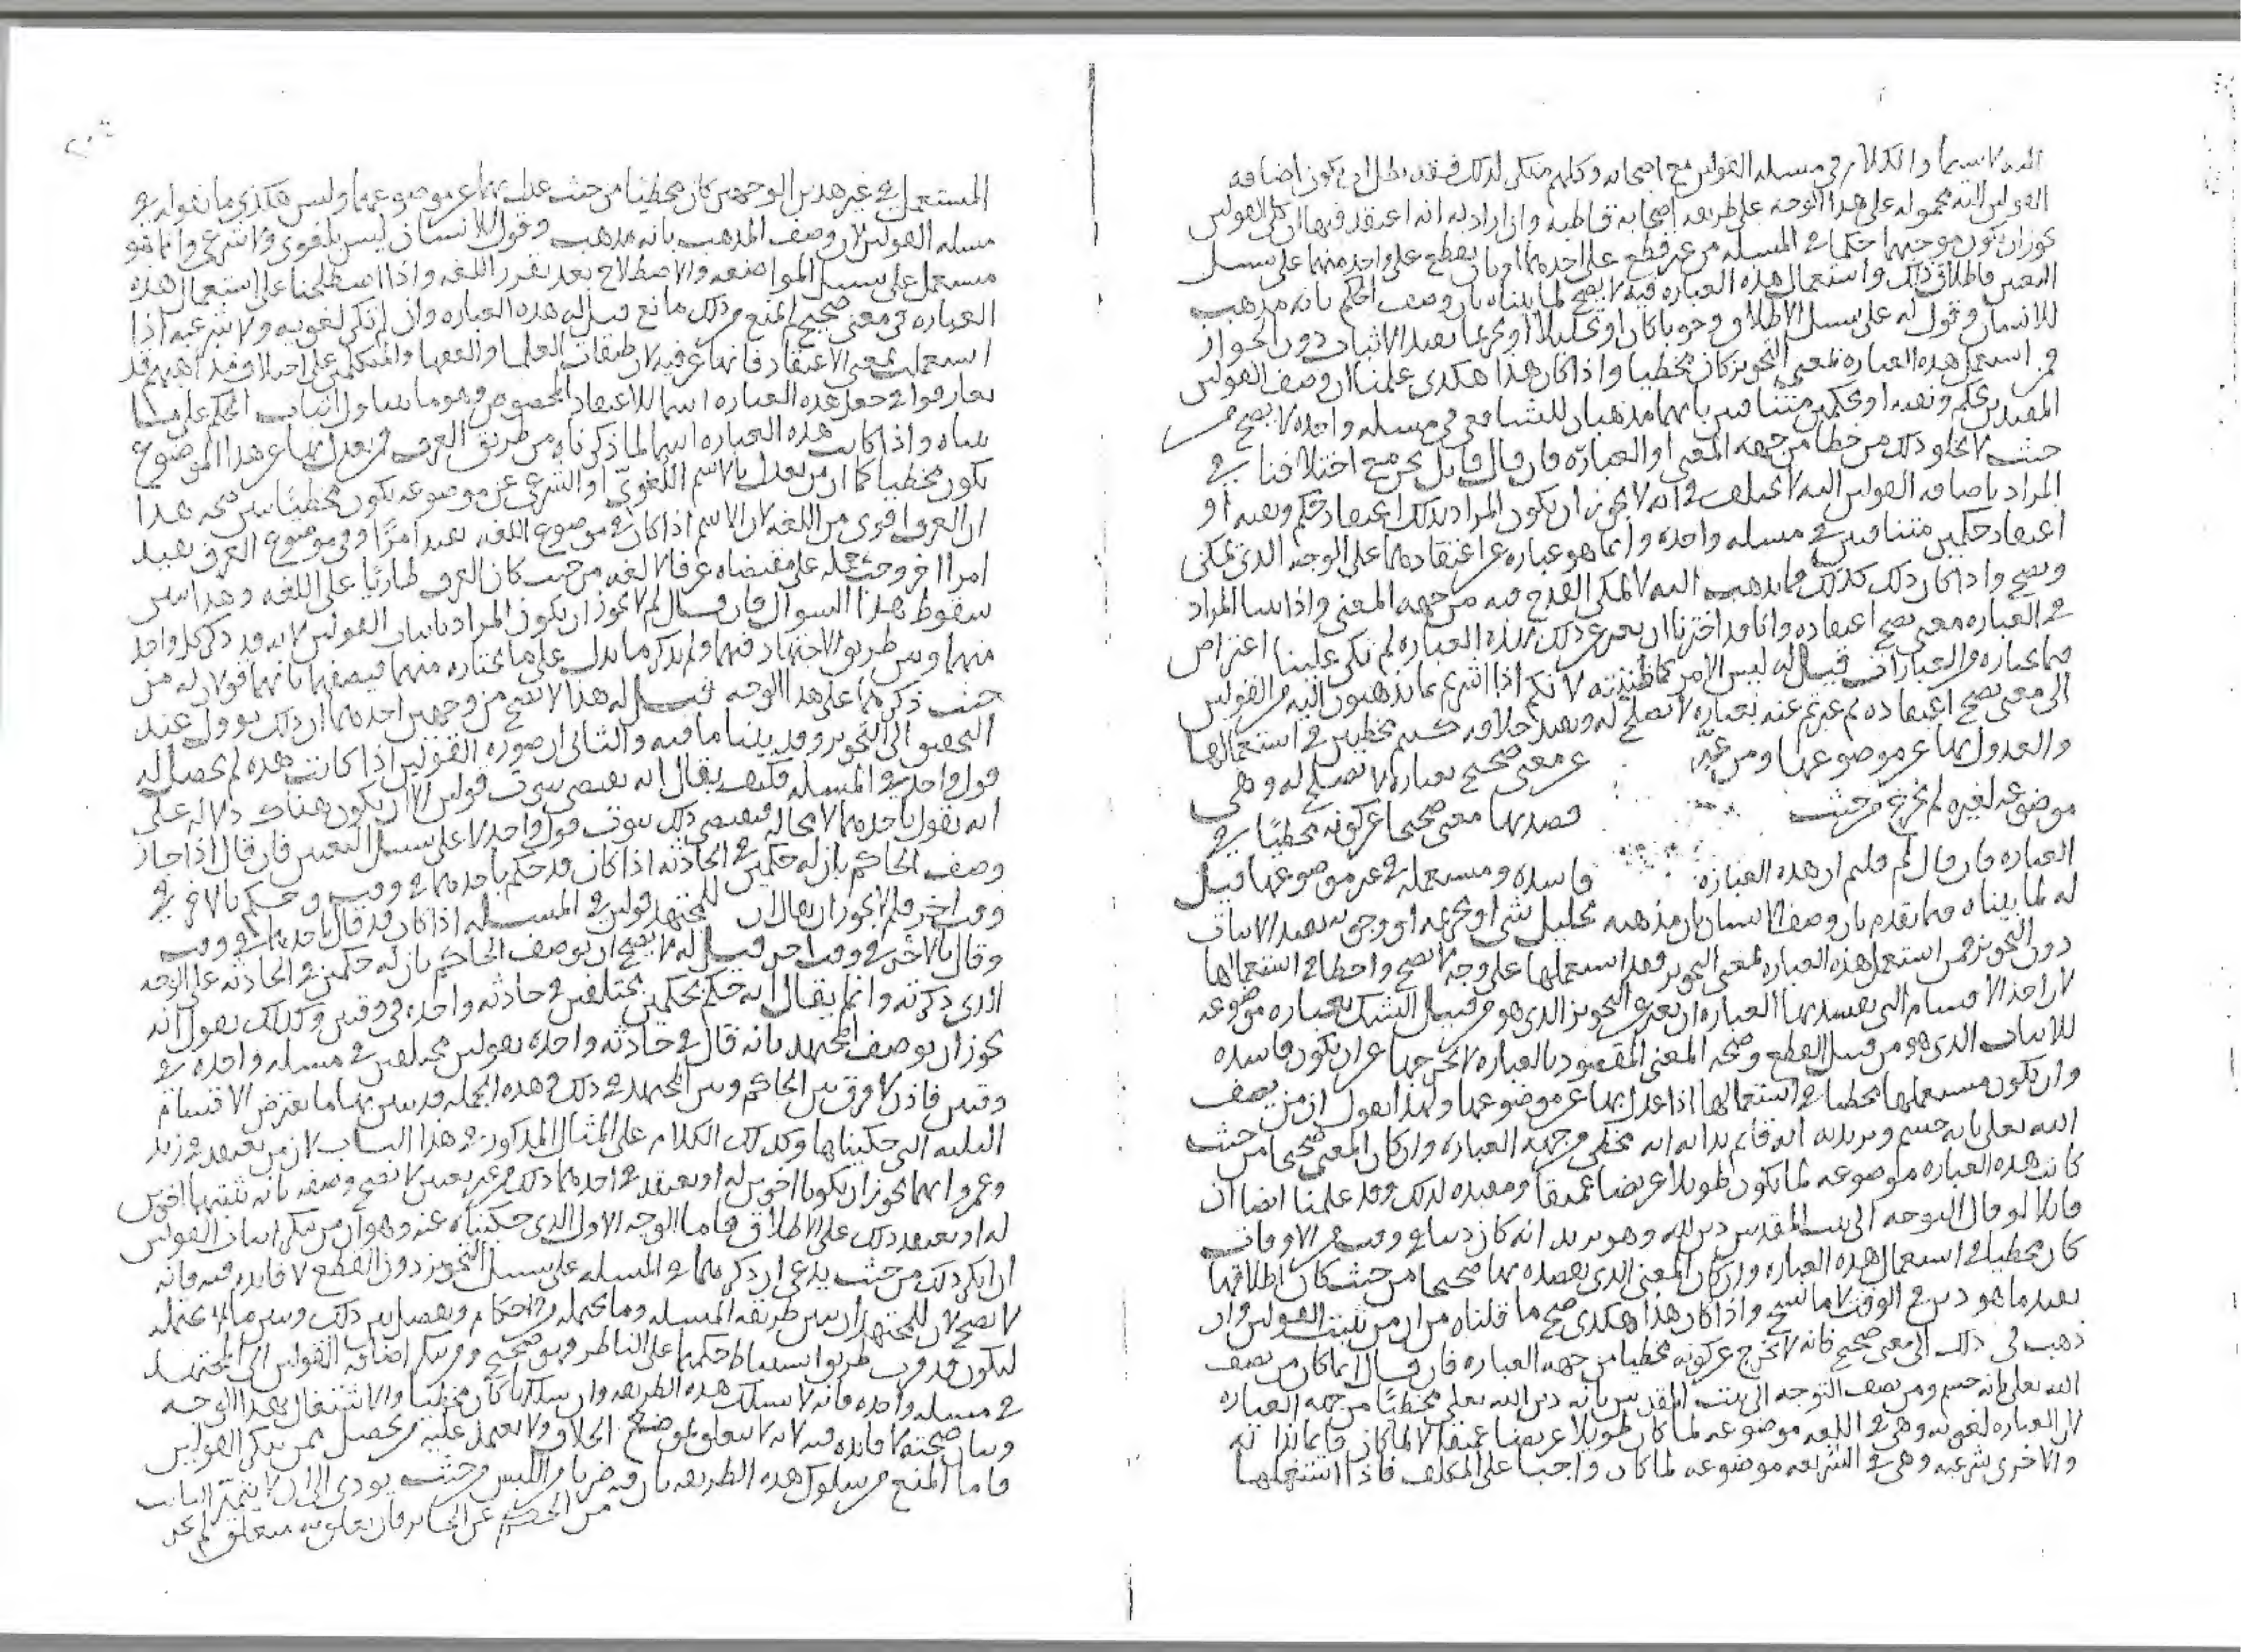 اليه لا سيما والكلام في مسئله القولين مع اصحابه وكلهم منكر لذلك فقد بطل ان يكون اضافه
القولين اليه محموله على هذا الوجه على طريقه اصحابه قاطبه وان اراد به انه اعتقد فيها ان كل القولين
يجوز ان يكون موجبهما حكما في المسئله من غير قطع على احدهما او بان يقطع على واحد منهما على سبيل
التعيين فاطلاق ذلك واستعمال هذه العباره فيه لا يصح لما بيناه بان وصف الحكم بانه مذهب
للانسان وقول له على سبيل الاطلاق وجوبا كان او تحليلا او تحريما يفيد الاثبات دون الجواز
فمن استعمل هذه العباره بمعنى التجويز كان مخطيا واذا كان هذا هكذى علمنا ان وصف القولين
المفيدين لحكم ونفيه او لحكمين متنافيين بانهما مذهبان للشافعي في مسئله واحده لا يصح من
حيث لا يخلو ذلك من خطا من جهه المعنى او العباره فان قال قايل نحن مع اختلافنا في
المراد باضافه القولين اليه لا نختلف في انه لا يجوز ان يكون المراد بذلك اعتقاد حكم ونفيه او
اعتقاد حكمين متنافيين في مسئله واحده وانما هو عباره عن اعتقادهما على الوجه الذي يمكن
ويصح واذا كان ذلك كذلك فما يذهب اليه لا يمكن القدح فيه من جهه المعنى واذا بينا المراد
في العباره معنى يصح اعتقاده وانا قد اخترنا ان يعبر عن ذلك بهذه العباره لم يكن علينا اعتراض
فيما نختاره من العبارات قيل له ليس الامر كما ظننته لانكم اذا اشرتم بما تذهبون اليه من القولين
الى معنى يصح اعتقاده ثم عبرتم عنه بعباره لا تصلح له وتفيد خلافه كنتم مخطيين في استعمالها
والعدول بها عن موضوعها ومن عبر عن معنى صحيح بعباره لا تصلح له وهي
موضوعه لغيره لم يخرج من حيث قصد بها معنى صحيحا عن كونه مخطيا في
العباره فان قال لم قلتم ان هذه العباره فاسده ومستعمله في غير موضوعها قيل
له لما بيناه فيما تقدم بان وصف الانسان بان مذهبه تحليل شي او تحريمه او وجوبه يفيد الاثبات
دون التجويز فمن استعمل هذه العباره بمعنى التجويز فقد استعملها على وجه لا يصح واخطا في استعمالها
لان احد الاقسام التي تفسد بها العباره ان يعبر عن التجويز الذي هو من قبيل الشك بعباره موضوعه
للاثبات الذي هو من قبيل القطع وصحه المعنى المقصود بالعباره لا تخرجها عن ان تكون فاسده
وان يكون مستعملها مخطيا في استعمالها اذا عدل بها عن موضوعها ولهذا نقول ان من يصف
الله تعلى بانه جسم ويريد به انه قايم بذاته انه مخطي من جهه العباره وان كان المعنى صحيحا من حيث
كانت هذه العباره موضوعه لما يكون طويلا عريضا عميقا ومفيده لذلك وقد علمنا ايضا ان
قايلا لو قال التوجه الى بيت المقدس دين الله وهو يريد انه كان دينا في وقت من الاوقات
كان مخطيا في استعمال هذه العباره وان كان المعنى الذي يقصده بها صحيحا من حيث كان اطلاقها
يفيد ما هو دين في الوقت لا ما نسخ واذا كان هذا هكذى صح ما قلناه من ان من يثبت القولين وان
ذهب في ذلك الى معنى صحيح فانه لا يخرج عن كونه مخطيا من جهه العباره فان قال انما كان من يصف
الله تعلى بانه جسم ومن يصف التوجه الى بيت المقدس بانه دين الله تعلى مخطيا من جهه العباره
لان العباره لغويه وهي في اللغه موضوعه لما كان طويلا عريضا عميقا لا لما كان قايما بذاته
والاخرى شرعيه وهي في الشريعه موضوعه لما كان واجبا على المكلف فاذا استعملها
المستعمل في غير هذين الوجهين كان مخطيا من حيث عدل بهما عن موضوعهما وليس هكذى ما نقوله في
مسئله القولين لان وصف المذهب بانه مذهب وقول للانسان ليس بلغوى ولا شرعي وانما هو
مستعمل على سبيل المواضعه والاصطلاح بعد تقرر اللغه واذا اصطلحنا على استعمال هذه
العباره في معنى صحيح لم يمنع من ذلك مانع قيل له هذه العباره وان لم تكن لغويه ولا شرعيه اذا
استعملت بمعنى الاعتقاد فانها عرفيه لان طبقات العلما والفقها والمتكلمين على اختلاف مذاهبهم قد
تعارفوا في جعل هذه العباره اسما للاعتقاد المخصوص وهو ما يتناول اثبات الحكم على ما
بيناه واذا كانت هذه العباره اسما لما ذكرناه من طريق العرف فمن عدل بها عن هذا الموضوع
يكون مخطيا كما ان من يعدل بالاسم اللغوي او الشرعي عن موضوعه يكون مخطيا يبين صحه هذا
ان العرف اقوى من اللغه لان الاسم اذا كان في موضوع اللغه يفيد امرا وفي موضوع العرف يفيد
امرا اخر وجب حمله على مقتضاه عرفا لا لغه من حيث كان العرف طاريا على اللغه وهذا يبين
سقوط هذا السوال فان قال لم لا يجوز ان يكون المراد باثبات القولين لانه قد ذكر كل واحد
منهما وبين طريق الاجتهاد فيهما ولم يذكر ما يدل على ما يختاره منهما فيصفهما بانهما قولان له من
حيث ذكرهما على هذا الوجه قيل له هذا لا يصح من وجهين احدهما ان ذلك يوول عند
التحقيق الى التجويز وقد بينا ما فيه والثاني ان صوره القولين اذا كانت هذه لم يحصل له
قول واحد في المسئله فكيف يقال انه يقتضي ثبوت قولين الا ان يكون هناك دلاله على
انه يقول باحدهما لا محاله فيقتضي ذلك ثبوت قول واحد لا على سبيل التعيين فان قال اذا جاز
وصف الحاكم بان له حكمين في الحادثه اذا كان قد حكم باحدهما في وقت وحكم بالاخر في
وقت اخر فلم لا يجوز ان يقال ان للمجتهد قولين في المسئله اذا كان قد قال باحدهما في وقت
وقال بالاخر في وقت اخر قيل له لا يصح ان يوصف الحاكم بان له حكمين في الحادثه على الوجه
الذي ذكرته وانما يقال انه حكم بحكمين مختلفين في حادثه واحده في وقتين وكذلك نقول انه
يجوز ان يوصف المجتهد بانه قال في حادثه واحده بقولين مختلفين في مسئله واحده في
وقتين فاذن لا فرق بين الحاكم وبين المجتهد في ذلك وهذه الجمله قد بين بها ما يعترض الاقسام
الثلثه التي حكيناها وكذلك الكلام على المثال المذكور في هذا الباب لان من يعتقد في زيد
وعمرو انهما يجوز ان يكونا اخوين له او يعتقد في احدهما ذلك من غير تعيين لا يصح وصفه بانه يثبتهما اخوين
له او يعتقد ذلك على الاطلاق فاما الوجه الاول الذي حكيناه عنه وهو ان من ينكر اثبات القولين
ان انكر ذلك من حيث يدعي ان ذكرهما في المسئله على سبيل التجويز دون القطع لا فايده فيه فانه
لا يصح لان للمجتهد ان يبين طريقه المسئله وما يحتمله من الاحكام ويفصل بين ذلك وبين ما لا يحتمله
ليكون قد قرب طريق استنباط حكمها على الناظر فهو صحيح ومن ينكر اضافه القولين الى المجتهد
في مسئله واحده فانه لا يسلك هذه الطريقه وان سلكها كان مخطيا والاشتغال بهذا الوجه
وبيان صحته لا فايده فيه لانه لا يتعلق بموضع الخلاف ولا يعتمد عليه من يحصل ممن ينكر القولين
فاما المنع من سلوك هذه الطريقه بان فيه ضربا من اللبس من حيث يودي الى ان لا يتميز الثابت
من الحكم عن الجايز فان تعلق به متعلق لم يجد